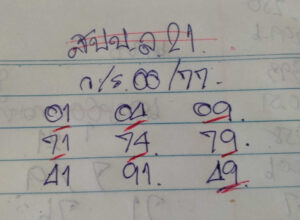 สปป.ล.21.
ก/ธ.00/77.
01 04 09.
71 74. 79.
41 91. 49.